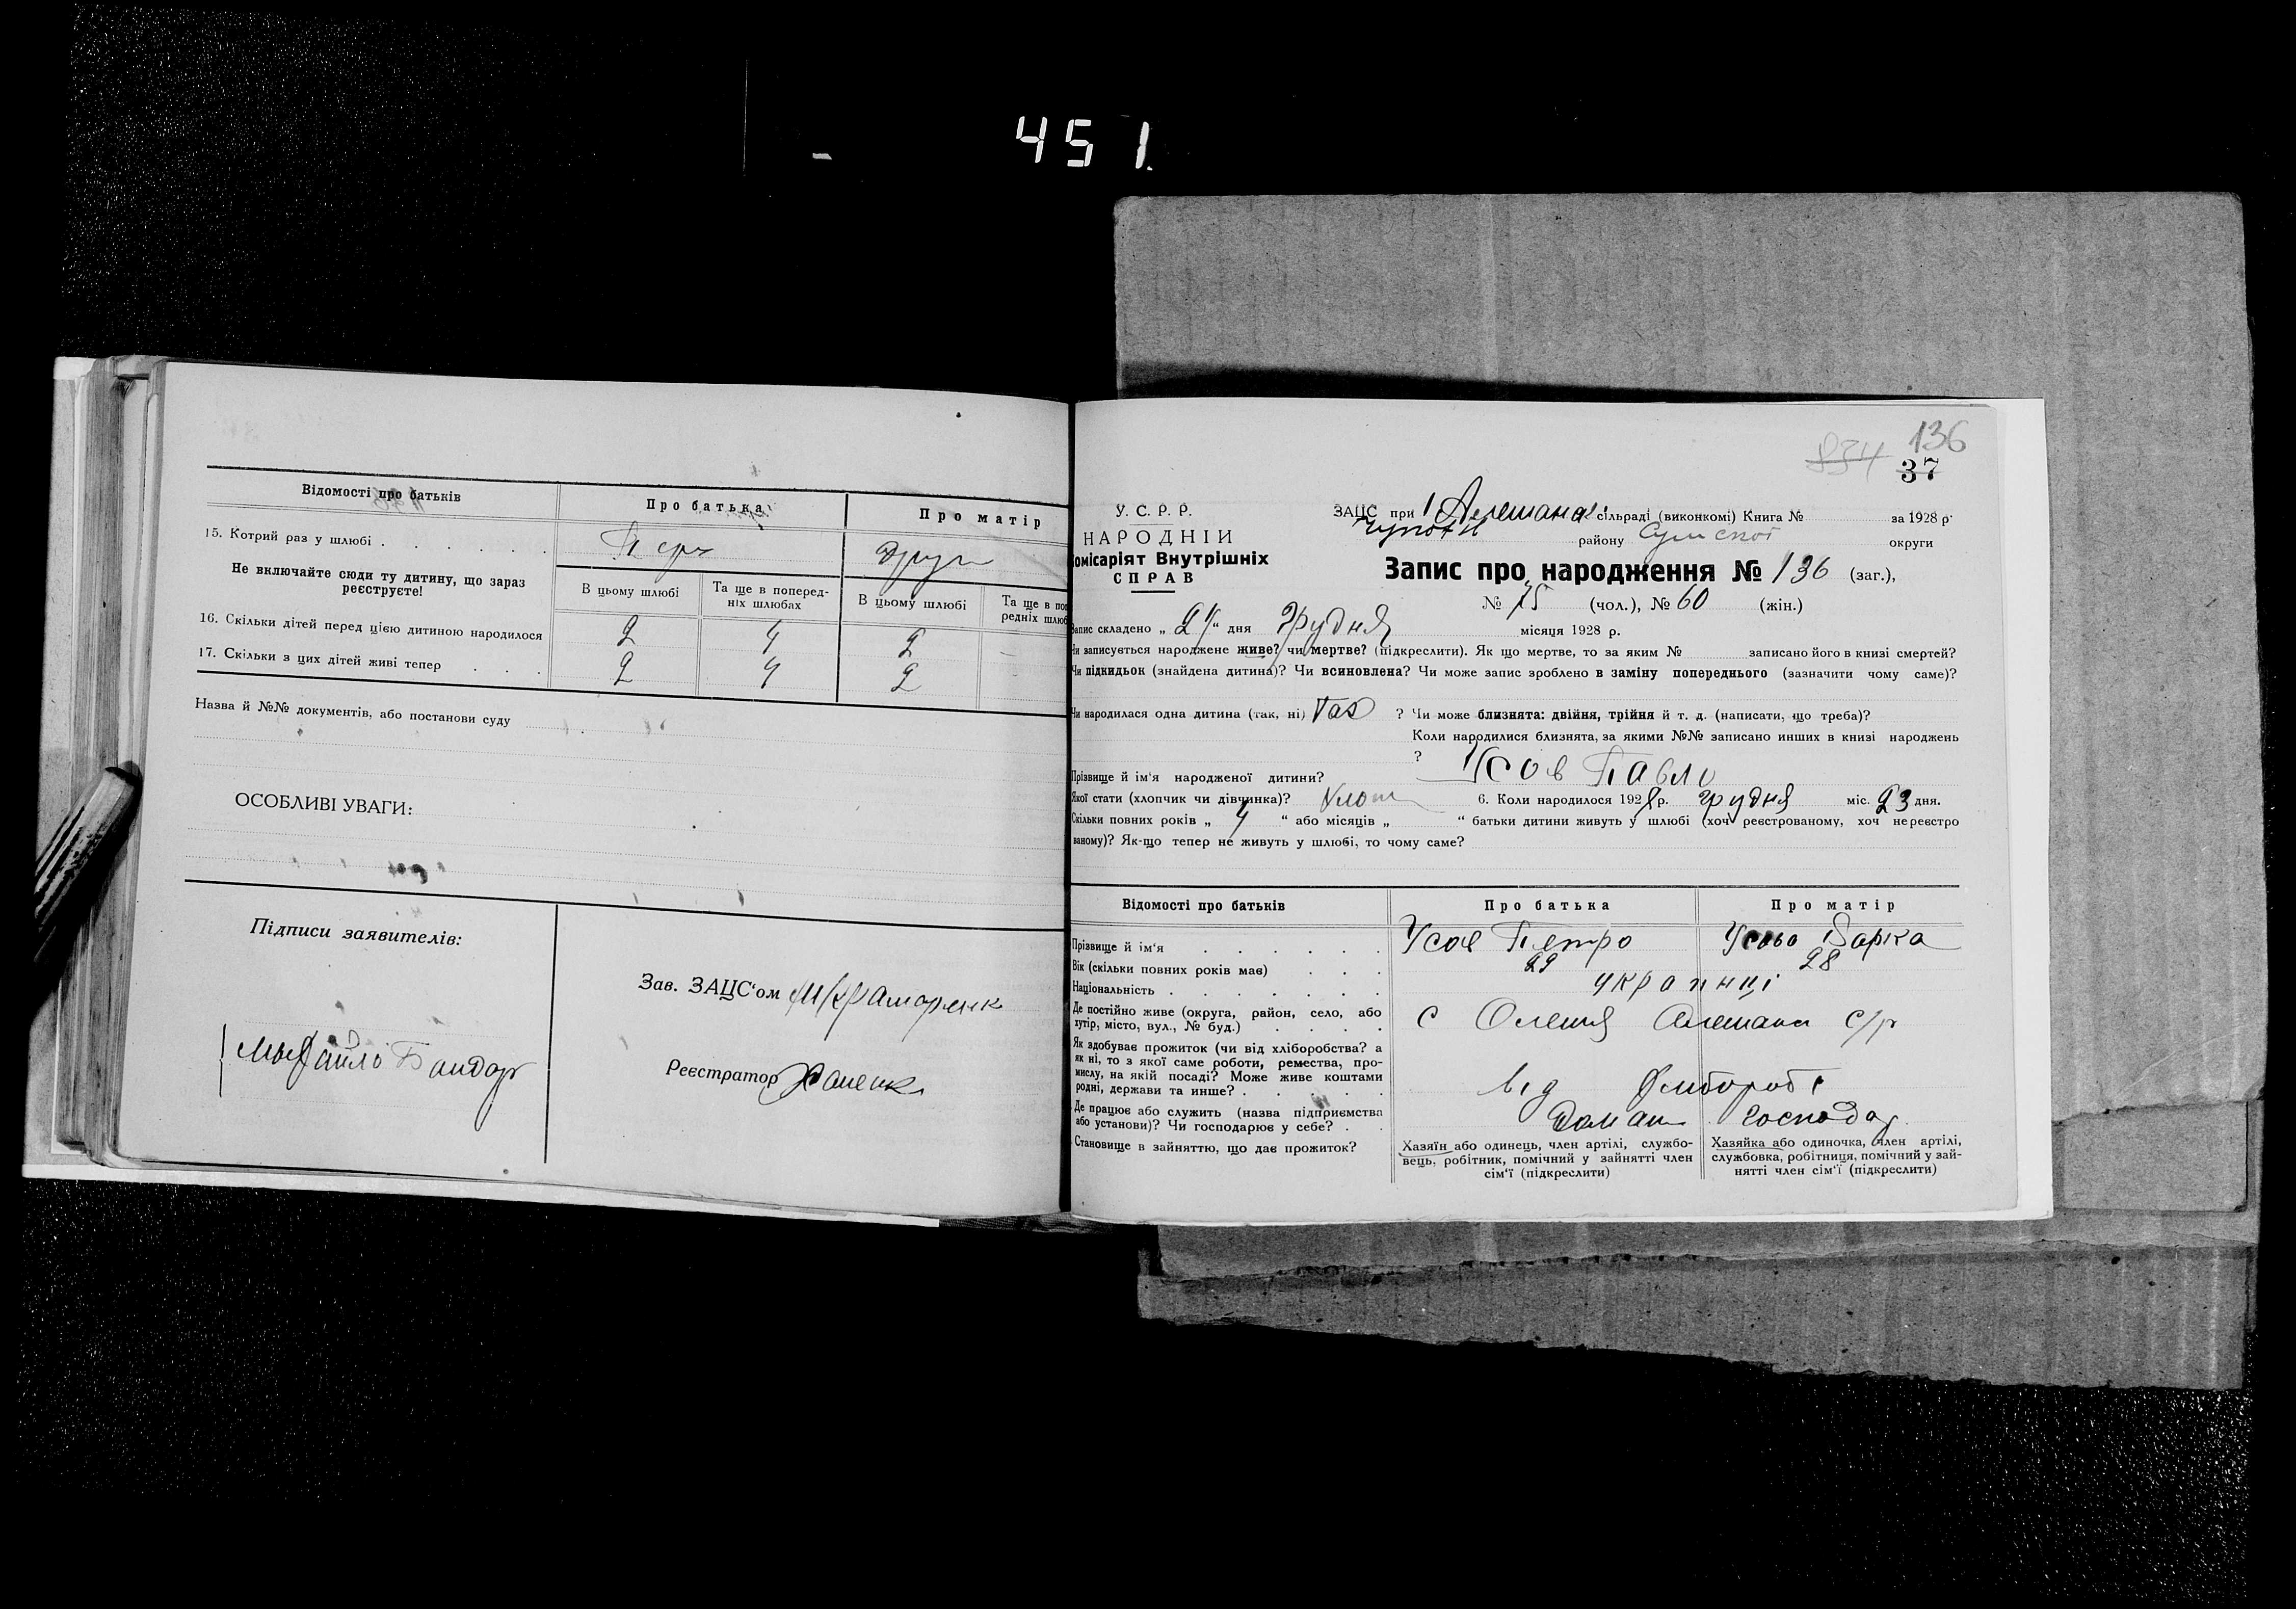 451.
Відомості про батьків
Про батька
Про матір
15. Котрий раз у шлюбі . . . . . .
Перш
други
Не включайте сюди ту дитину, що зараз
реєструєте!
В цьому шлюбі
Та ще в поперед-
ніх шлюбах
В цьому шлюбі
Та ще в поп
редніх шлюб
16. Скільки дітей перед цією дитиною народилося
2
4
2
—
17. Скільки з цих дітей живі тепер . . .
2
4
2
Назва й №№ документів, або постанови суду
ОСОБЛИВІ УВАГИ:
Підписи заявителів:
Зав. ЗАЦС'ом
Бандар
Реєстратор
834 136
37
У. С. Р. Р.
НАРОДНІЙ
омісаріят Внутрішніх
СПРАВ
ЗАЦС при сільраді (виконкомі) Книга № за 1928 р.
району Сумської округи
Запис про народження № 136 (заг.),
№ 75 (чол.), № 60 (жін.)
Запис складено „ 24 “ дня Грудня місяця 1928 р.
Чи записується народжене живе? чи мертве? (підкреслити). Як що мертве, то за яким № записано його в книзі смертей?
Чи підкидьок (знайдена дитина)? Чи всиновлена? Чи може запис зроблено в заміну попереднього (зазначити чому саме)?
Чи народилася одна дитина (так, ні) Так ? Чи може близнята: двійня, трійня й т. д. (написати, що треба)?
Коли народилися близнята, за якими №№ записано инших в книзі народжень
?
Прізвище й ім'я народженої дитини? Усов Павло
Якої стати (хлопчик чи дівчинка)? Хлоп 6. Коли народилося 1928 р. грудня міс. 23 дня.
Скільки повних років „ 4 “ або місяців „ “ батьки дитини живуть у шлюбі (хоч реєстрованому, хоч нереєстро
ваному)? Як-що тепер не живуть у шлюбі, то чому саме?
Відомості про батьків
Про батька
Про матір
Прізвище й ім'я . . . . . .
Усов Петро
Усова Варка
Вік (скільки повних років має) . . .
29
28
Національність . . . . . . .
українці
Де постійно живе (округа, район, село, або
хутір, місто, вул., № буд.) . . . .
с Олешня с/р
Як здобуває прожиток (чи від хліборобства? а
як ні, то з якої саме роботи, ремества, про-
мислу, на якій посаді? Може живе коштами
родні, держави та инше? . . . . .
від хлібороб
Де працює або служить (назва підприємства
або установи)? Чи господарює у себе? . .
Домаш господар
Становище в зайняттю, що дає прожиток?
Хазяїн або одинець, член артілі, службо-
вець, робітник, помічний у зайнятті член
сім'ї (підкреслити)
Хазяйка або одиночка, член артілі,
службовка, робітниця, помічний у зай-
нятті член сім'ї (підкреслити)